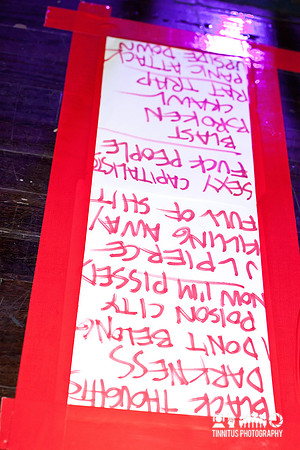 BLACK THOUGHTS
DARKNESS
I DON'T BELONG
POISON CITY
NOW I'M PISSED
J L PIERCE
KILLING AWAY
FULL OF SHIT
SEXY CAPITALISTS
FUCK PEOPLE
BLAST
BROKEN
CRAWL
RAT TRAP
PANIC ATTACK
UPSIDE DOWN
TINNITUS PHOTOGRAPHY